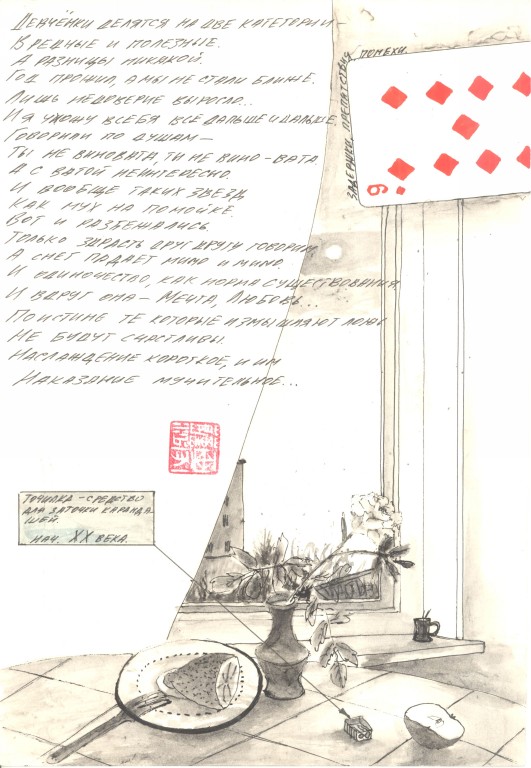 ДЕНЧЁНКИ ДЕЛЯТСЯ НА ДВЕ КАТЕГОРИИ —
ВРЕДНЫЕ И ПОЛЕЗНЫЕ.
А РАЗНИЦЫ НИКАКОЙ.
ГОД ПРОШЁЛ, А МЫ НЕ СТАЛИ БЛИЖЕ.
ЛИШЬ НЕДОВЕРИЕ ВЫРОСЛО...
И Я УХОЖУ В СЕБЯ ВСЁ ДАЛЬШЕ И ДАЛЬШЕ.
ГОВОРИЛИ ПО ДУШАМ —
ТЫ НЕ ВИНОВАТА, ТЫ НЕ ВИНО-ВАТА
А С ВАТОЙ НЕИНТЕРЕСНО.
И ВООБЩЕ ТАКИХ ЗВЕЗД,
КАК МУХ НА ПОМОЙКЕ.
ВОТ И РАЗБЕЖАЛИСЬ
ТОЛЬКО ЗДРАСТЬ ДРУГ ДРУГУ ГОВОРИМ,
А СНЕГ ПАДАЕТ МИМО И МИМО.
И ОДИНОЧЕСТВО, КАК НОРМА СУЩЕСТВОВАНИЯ
И ВДРУГ ОНА — МЕЧТА, ЛЮБОВЬ...
ПОИСТИНЕ ТЕ КОТОРЫЕ ИЗМЫШЛЯЮТ ЛОЖЬ
НЕ БУДУТ СЧАСТЛИВЫ.
НАСЛАЖДЕНИЕ КОРОТКОЕ, И ИМ
НАКАЗАНИЕ МУЧИТЕЛЬНОЕ...
ЗАДЕРЖКИ, ПРЕПЯТСТВИЯ, ПОМЕХИ.
9
ТОЧИЛКА - СРЕДСТВО
ДЛЯ ЗАТОЧКИ КАРАНДА-
ШЕЙ.
НАЧ. XX ВЕКА.